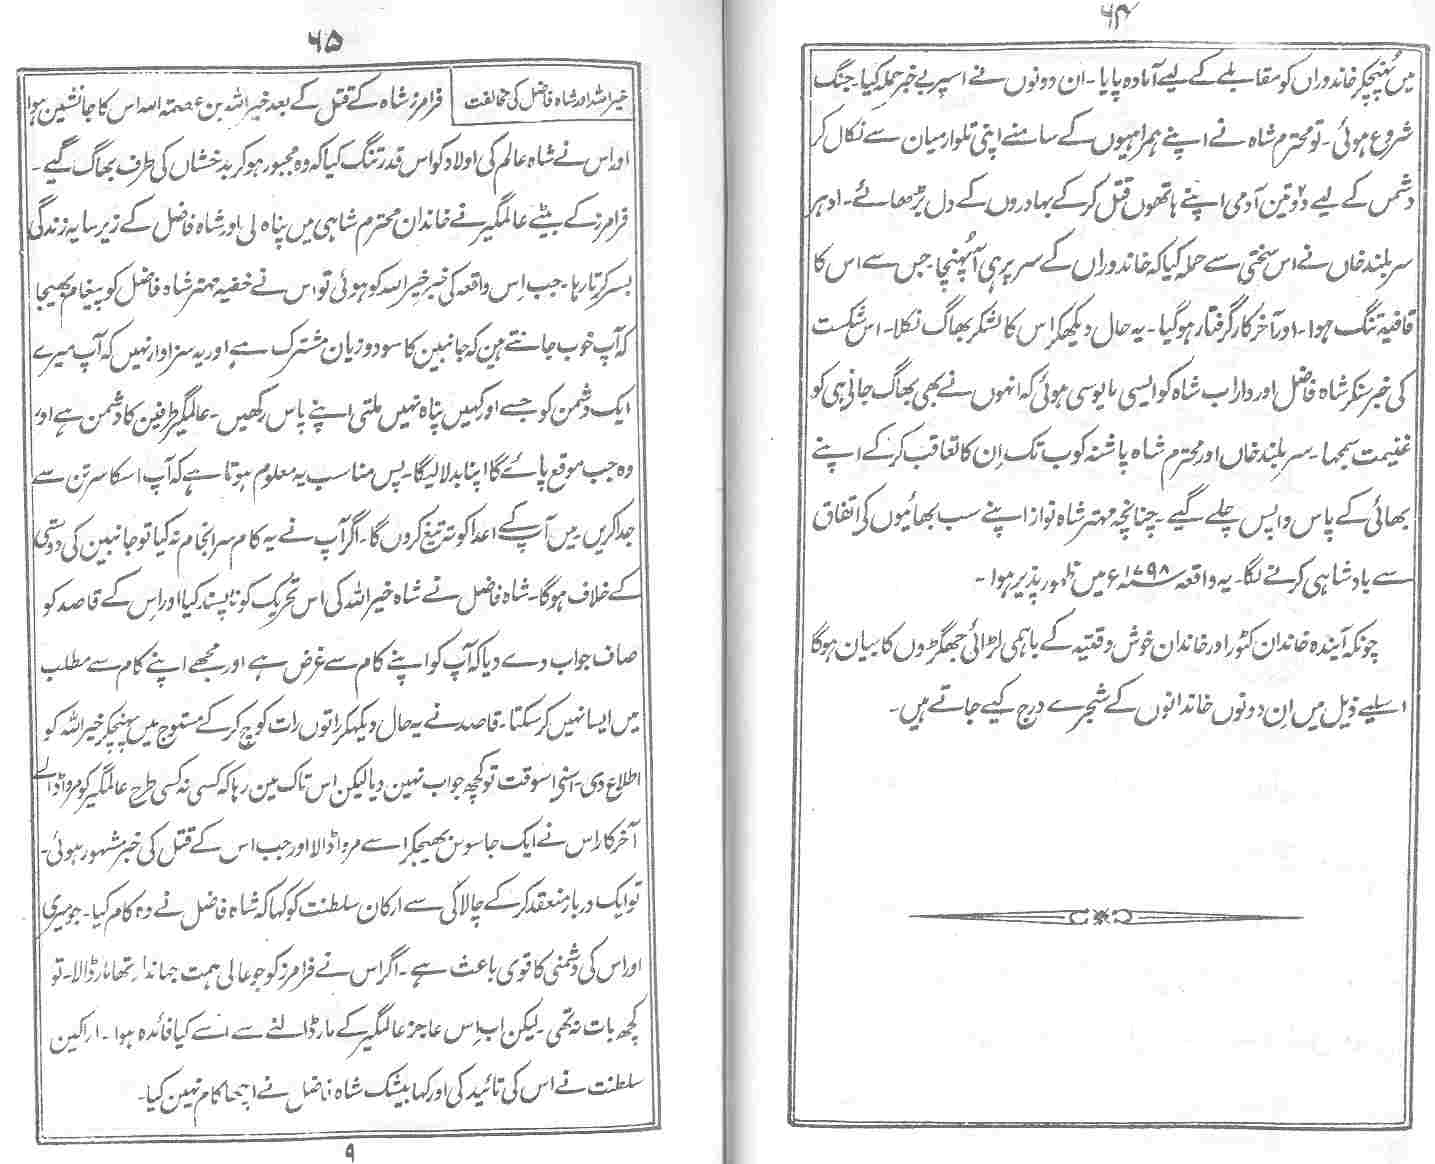 ۶۴
میں پُہنچکر خاندوراں کو مقابلے کے لیے آمادہ پایا۔ ان دونوں نے اسپر بے خبر حملہ کیا۔ جنگ
شروع ہوئی۔ تو محترم شاہ نے اپنے ہمراہیوں کے سامنے اپنی تلوار میان سے نکال کر
دشمں کے لیے دو تین آدمی اپنے ہاتھوں قتل کر کے بہادروں کے دل بڑھائے۔ ادہر
سربلند خاں نے اس سختی سے حملہ کیا کہ خاندوراں کے سر پر ہی آ پُہنچا۔ جس سے اس کا
قافیہ تنگ ہوا۔ اور آخر کار گرفتار ہو گیا۔ یہ حال دیکھکر اس کا لشکر بھاگ نکلا۔ اس شکست
کی خبر سنکر شاہ فاضل اور داراب شاہ کو ایسی مایوسی ہوئی کہ انہوں نے بھی بھاگ جانی ہی کو
غنیمت سمجہا۔ سربلند خاں اور محترم شاہ پاشنہ کوب تک اِن کا تعاقب کر کے اپنے
بھائی کے پاس واپس چلے گیے۔ چنانچہ مہتر شاہ نواز اپنے سب بھائیوں کی اتفاق
سے بادشاہی کرنے لگا۔ یہ واقعہ ۱۷۹۸ء میں ظہور پذیر ہوا۔
چونکہ آیندہ خاندان کٹور اور خاندان خوش وقتیہ کے باہمی لڑائی جھگڑوں کا بیان ہوگا
اسلیے ذیل میں اِن دونوں خاندانوں کے شجرے درج کیے جاتے ہیں۔
۶۵
خیر اللہ اور شاہ فاضل کی مخالفت
فرامرز شاہ کے قتل کے بعد خیر اللہ بن عصمۃ اللہ اس کا جانشین ہوا
اور اس نے شاہ عالم کی اولاد کو اس قدر تنگ کیا کہ وہ مجبور ہو کر بدخشاں کی طرف بھاگ گیے۔
فرامرز کے بیٹے عالمگیر نے خاندان محترم شاہی میں پناہ لی اور شاہ فاضل کے زیر سایہ زندگی
بسر کرتا رہا۔ جب اِس واقعہ کی خبر خیر اللہ کو ہوئی تو اس نے خفیہ مہتر شاہ فاضل کو پیغام بھیجا
کہ آپ خوب جانتے ہیں کہ جانبین کا سود و زیان مشترک ہے اور یہ سزاوار نہیں کہ آپ میرے
ایک دشمن کو جسے اور کہیں پناہ نہیں ملتی اپنے پاس رکھیں۔ عالمگیر طرفین کا دشمن ہے اور
وہ جب موقع پائے گا اپنا بدلا لیگا۔ پس مناسب یہ معلوم ہوتا ہے کہ آپ اسکا سر تن سے
جدا کریں میں آپ کے اعدا کو تہ تیغ کروں گا۔ اگر آپ نے یہ کام سر انجام نہ کیا تو جانبین کی دوستی
کے خلاف ہوگا۔ شاہ فاضل نے شاہ خیر اللہ کی اس تحریک کو ناپسند کیا اور اِس کے قاصد کو
صاف جواب دے دیا کہ آپ کو اپنے کام سے غرض ہے اور مجھے اپنے کام سے مطلب
میں ایسا نہیں کر سکتا۔ قاصد نے یہ حال دیکہکر راتوں رات کوچ کر کے مستوج میں پہنچکر خیر اللہ کو
اطلاع دی۔ اسنی اسوقت تو کچھ جواب نہین دیا لیکن اس تاک مین رہا کہ کسی نہ کسی طرح عالمگیر کو مرواڈالے
آخر کار اس نے ایک جاسوس بھیجکر اسے مرواڈالا اور جب اس کے قتل کی خبر مشہور ہوئی۔
تو ایک دربار منعقد کر کے چالاکی سے ارکان سلطنت کو کہا کہ شاہ فاضل نے وہ کام کیا۔ جو میری
اور اس کی دشمنی کا قوی باعث ہے۔ اگر اس نے فرامرز کو جو عالی ہمت جہاندار تھا مار ڈالا۔ تو
کچھ بات نہ تھی۔ لیکن اب اِس عاجز عالمگیر کے مار ڈالنے سے اسے کیا فائدہ ہوا۔ اراکین
سلطنت نے اس کی تائید کی اور کہا بیشک شاہ فاضل نے اچہا کام نہین کیا۔
۹